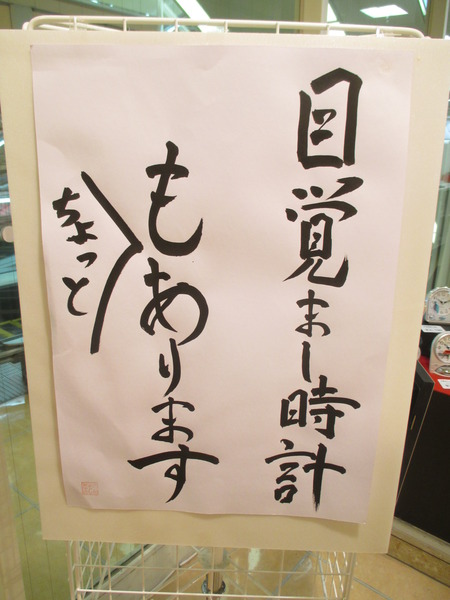 目覚まし時計
もあります
ちょっと